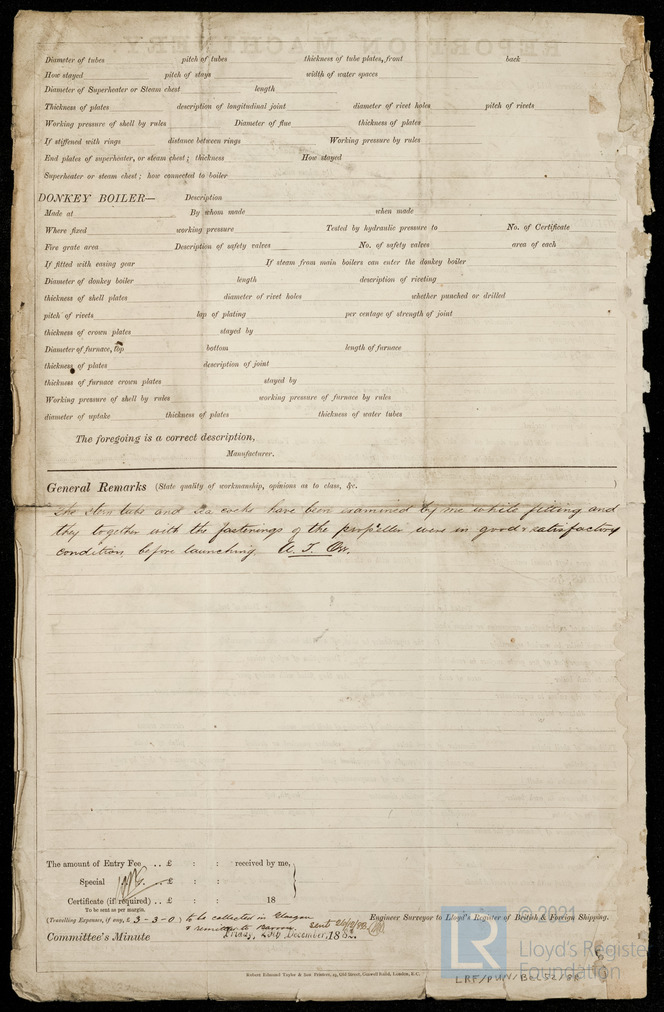 Diameter of tubes pitch of tubes thickness of tube plates, front back
How stayed pitch of stays width of water spaces
Diameter of Superheater or Steam chest length
Thickness of plates description of longitudinal joint diameter of rivet holes pitch of rivets
Working pressure of shell by rules Diameter of flue thickness of plates
If stiffened with rings distance between rings Working pressure by rules
End plates of superheater, or steam chest; thickness How stayed
Superheater or steam chest; how connected to boiler
DONKEY BOILER— Description
Made at By whom made when made
Where fixed working pressure Tested by hydraulic pressure to No. of Certificate
Fire grate area Description of safety valves No. of safety valves area of each
If fitted with easing gear If steam from main boilers can enter the donkey boiler
Diameter of donkey boiler length description of riveting
thickness of shell plates diameter of rivet holes whether punched or drilled
pitch of rivets lap of plating per centage of strength of joint
thickness of crown plates stayed by
Diameter of furnace, top bottom length of furnace
thickness of plates description of joint
thickness of furnace crown plates stayed by
Working pressure of shell by rules working pressure of furnace by rules
diameter of uptake thickness of plates thickness of water tubes
The foregoing is a correct description,
Manufacturer.
General Remarks (State quality of workmanship, opinions as to class, &c. )
The Stern tube and sea cocks have been examined by me while fitting and
they together with the fastenings of the propeller were in good & satisfactory
condition before launching. A. T. Orr.
The amount of Entry Fee .. £ : : received by me,
Special .. £ : :
Certificate (if required) .. £ : : 18
To be sent as per margin.
(Travelling Expenses, if any, £ 3-3-0) to be collected in Glasgow
& remitted to Barrow. Sent
Engineer Surveyor to Lloyd's Register of British & Foreign Shipping.
Committee's Minute December, 188
Robert Edmund Taylor & Son Printers, 19, Old Street, Goswell Road, London, E.C.
© 2021
LR
Lloyd's Register
Foundation